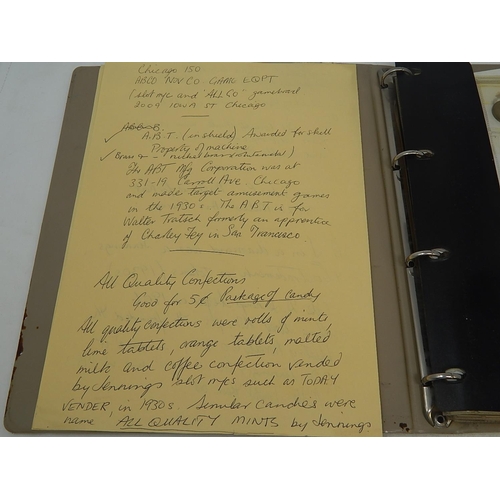 Chicago 150
ABCO NOV CO. GAME EQPT
(slot m/c and "ALL CO" gameboard
2009 IOWA ST Chicago
A.B.T. (in shield) Awarded for skill
Property of machine
Brass or nickel brass
The ABT Mfg Corporation was at
331-19 Carroll Ave. Chicago
and made target amusement games
in the 1930s. The A.B.T is for
Walter Tratsch formerly an apprentice
of Charley Fey in San Francisco.
All Quality Confections
Good for 5¢ Package of candy
All quality confections were rolls of mints,
lime tablets, orange tablets, malted
milk and coffee confection, vended
by Jennings slot m/cs such as TODAY
VENDER, in 1930s. Similar candies were
name ALL QUALITY MINTS by Jennings